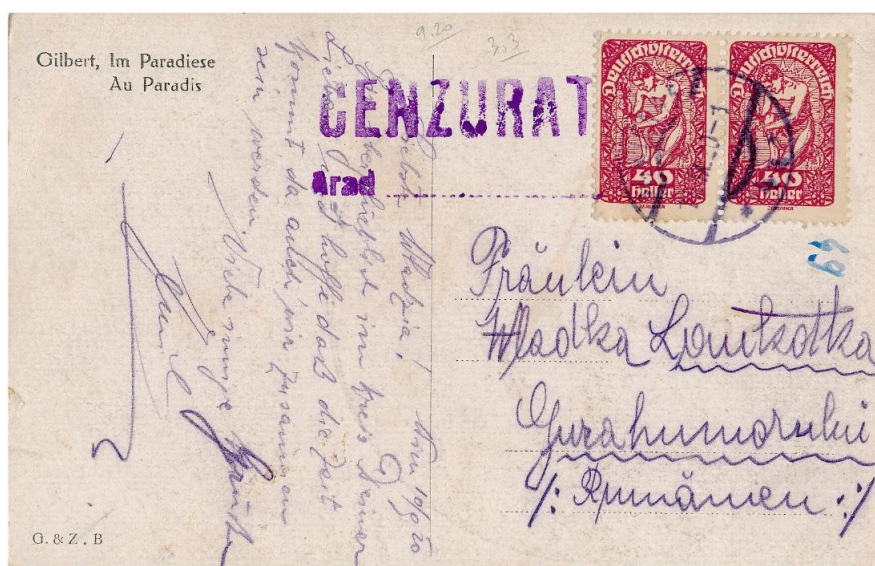 Gilbert, Im Paradiese
Au Paradis
9.20
3.3
CENZURAT
Arad
Deutschösterreich
40
Heller
Deutschösterreich
40
Heller
69
Fräulein
Wladka Loutkotka
Gurahumorului
/: Rumänien :/
Wladzia!
im Kreis Deiner
hoffe daß die Zeit
kommt da auch wir zusammen
sein werden. Viele innige
Grüße
Emil
G. & Z. B